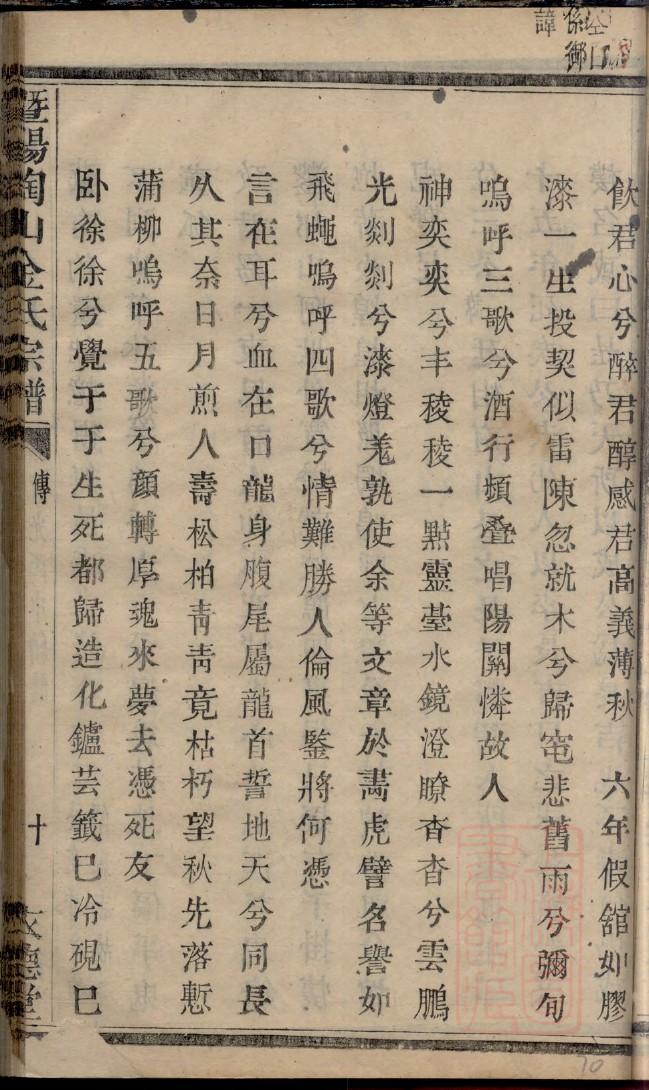 飲君心兮醉君醇感君高義薄秋 六年假舘如膠
漆一生投契似雷陳忽就木兮歸窀悲舊雨兮彌旬
嗚呼三歌兮酒行頻疊唱陽關憐故人
神奕奕兮丰稜稜一點靈臺水鏡澄瞭杳杳兮雲鵬
光剡剡兮漆燈羗孰使余等文章於畵虎譬名譽如
飛蠅嗚呼四歌兮情難勝人倫風鑒將何憑
言在耳兮血在口龍身腹尾屬龍首誓地天兮同長
久其奈日月煎人壽松柏靑靑竟枯朽望秋先落慙
蒲柳嗚呼五歌兮顔轉厚魂來夢去憑死友
卧徐徐兮覺于于生死都歸造化鑪芸籤巳冷硯巳
暨陽陶山金氏宗譜
傳
十
文德堂
諱